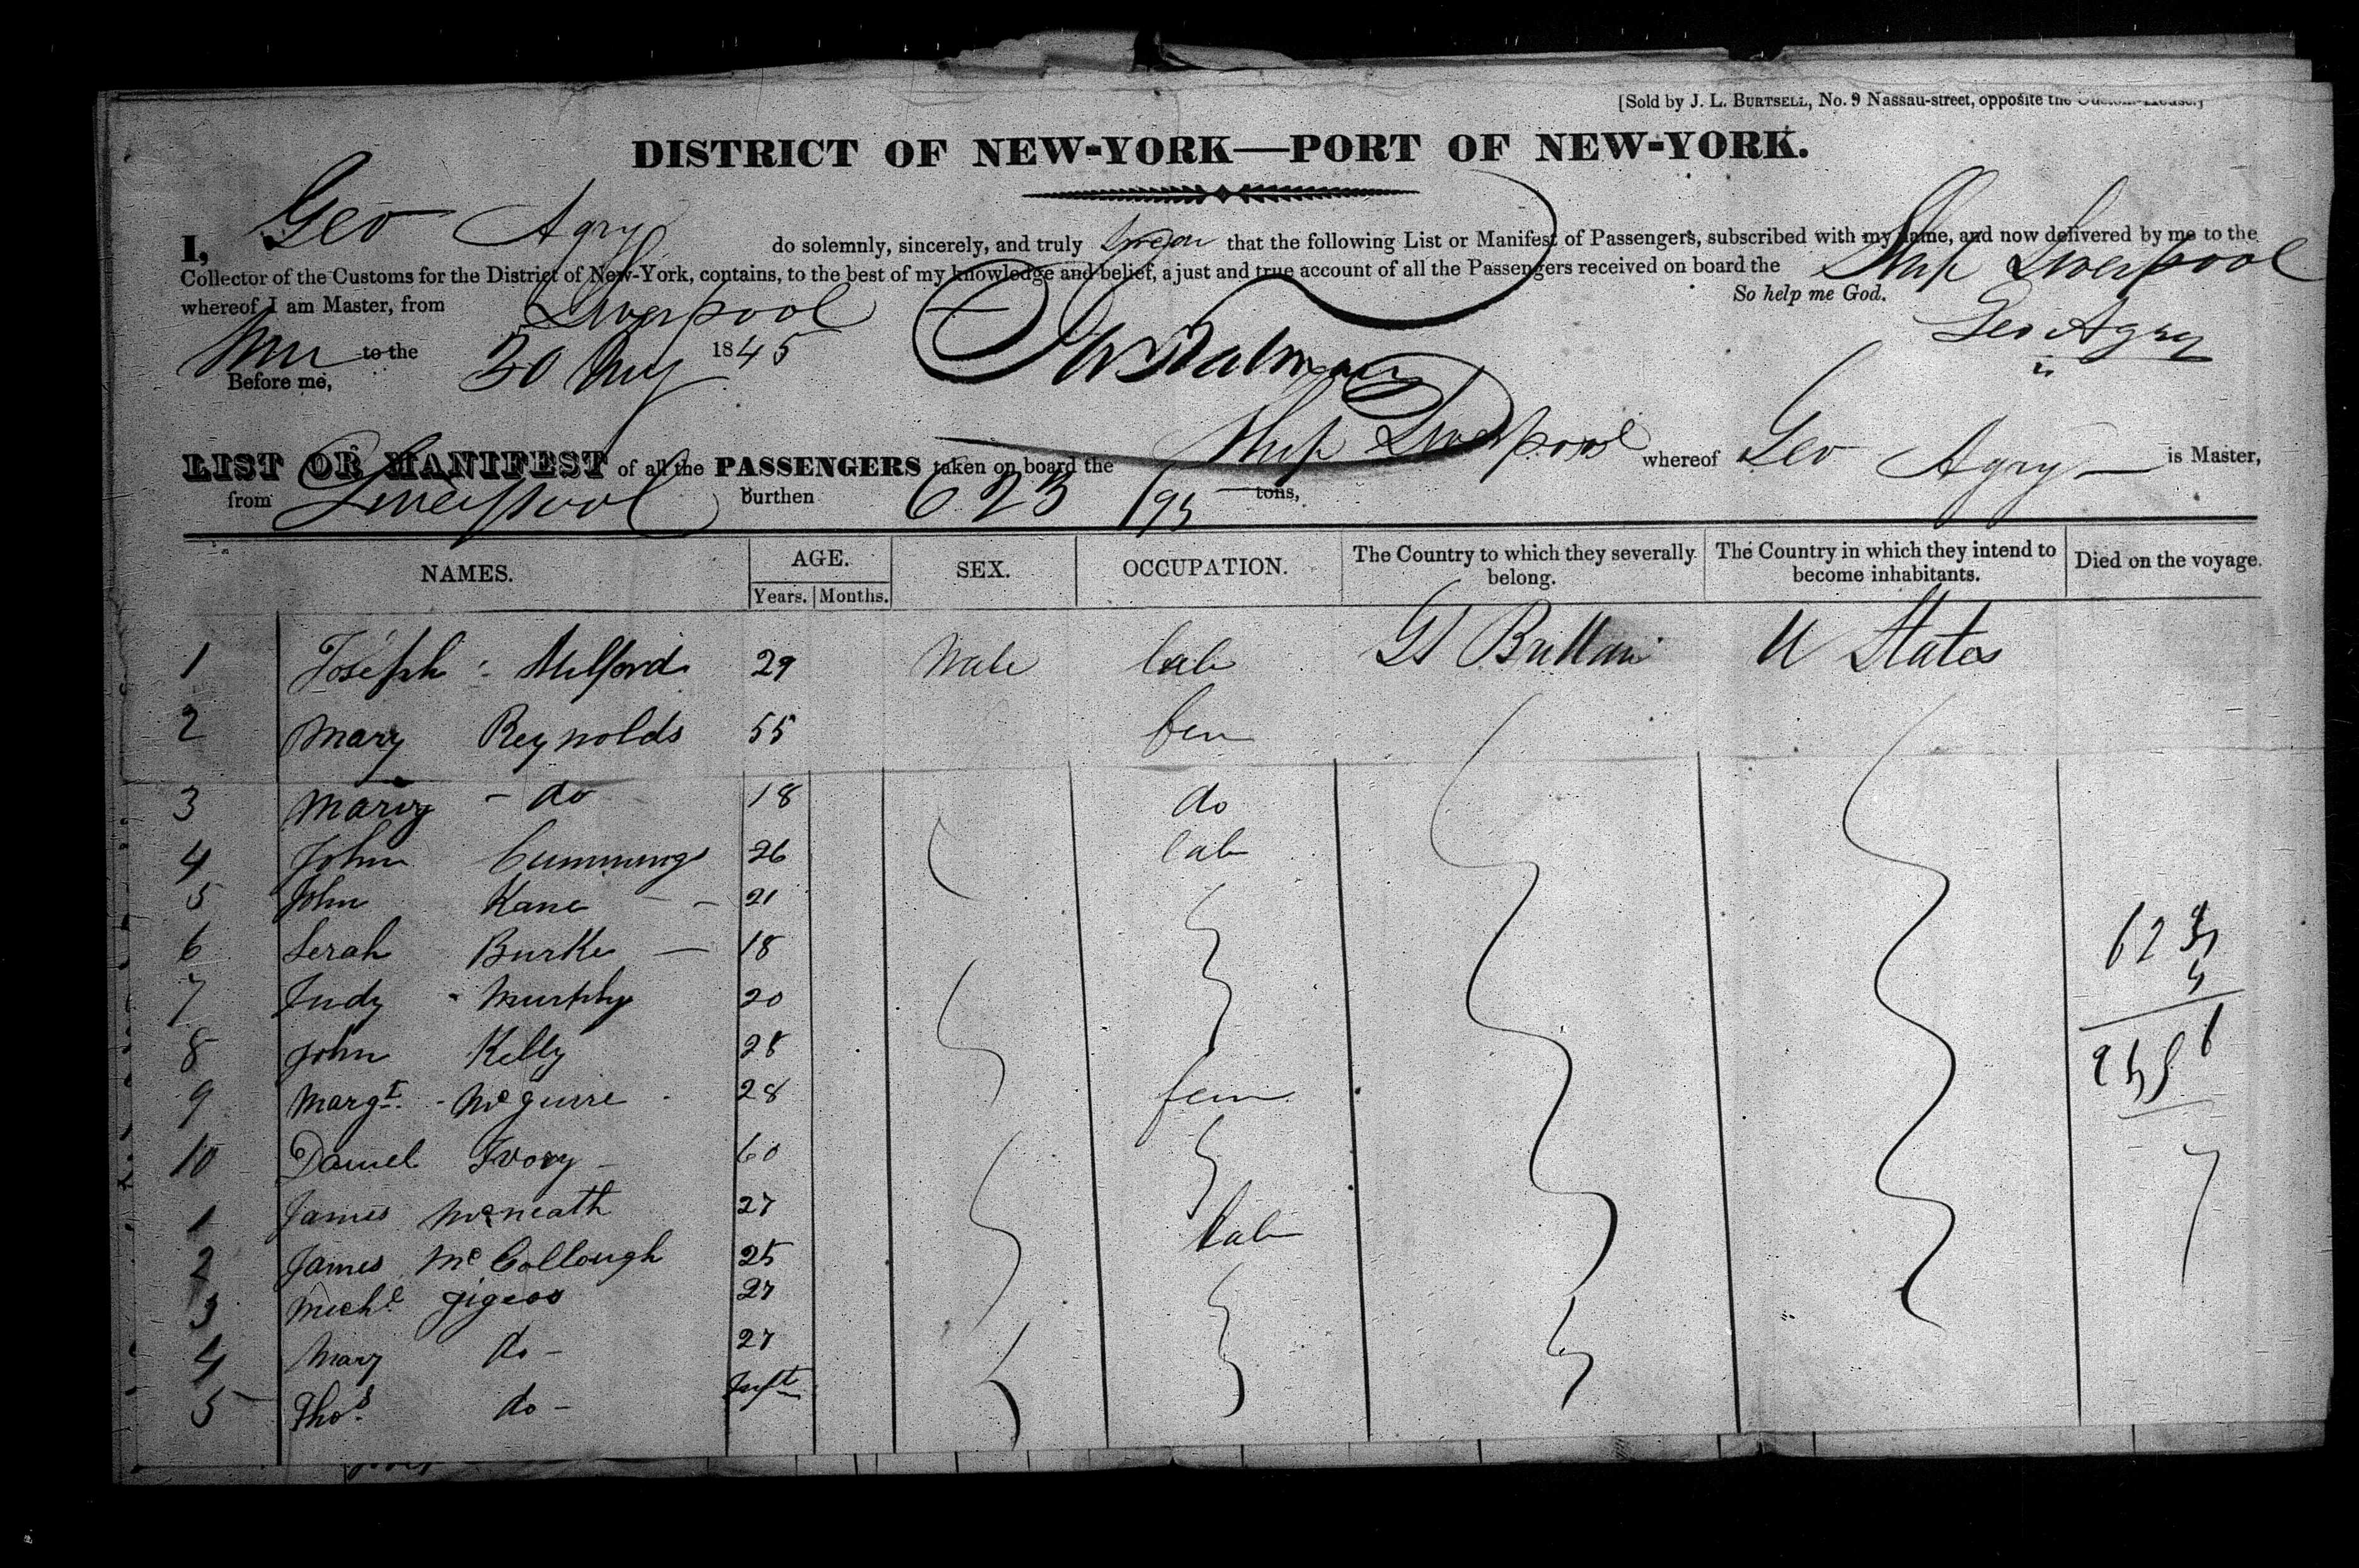 [Sold by J. L. BURTSELL, No. 9 Nassau-street, opposite the Custom-House.]
DISTRICT OF NEW-YORK—PORT OF NEW-YORK.
I, Geo Agry do solemnly, sincerely, and truly swear that the following List or Manifest of Passengers, subscribed with my name, and now delivered by me to the
Collector of the Customs for the District of New-York, contains, to the best of my knowledge and belief, a just and true account of all the Passengers received on board the Ship Liverpool
whereof I am Master, from Liverpool So help me God.
Geo Agry
to the 30 1845
Before me,
LIST OR MANIFEST of all the PASSENGERS taken on board the Ship Liverpool whereof Geo Agry is Master,
from Liverpool burthen 623 /95 tons,
NAMES. AGE. SEX. OCCUPATION. The Country to which they severally belong. The Country in which they intend to become inhabitants. Died on the voyage.
Years. Months.
1 Joseph Milford 29 Male lab Gt Brittain U States
2 Mary Reynolds 55 fem
3 Mary - do 18 do
4 John Cummings 26 lab
5 John Kane - 21
6 Serah Burke — 18
7 Judy Murphy 20
8 John Kelly 28
9 Margt. - McGuire 28 fem
10 Daniel Ivory - 60
1 James McNeath 27
2 James McCollough 25 lab
3 Michl. 27
4 Mary do - 27
5 Thos. do - Inft